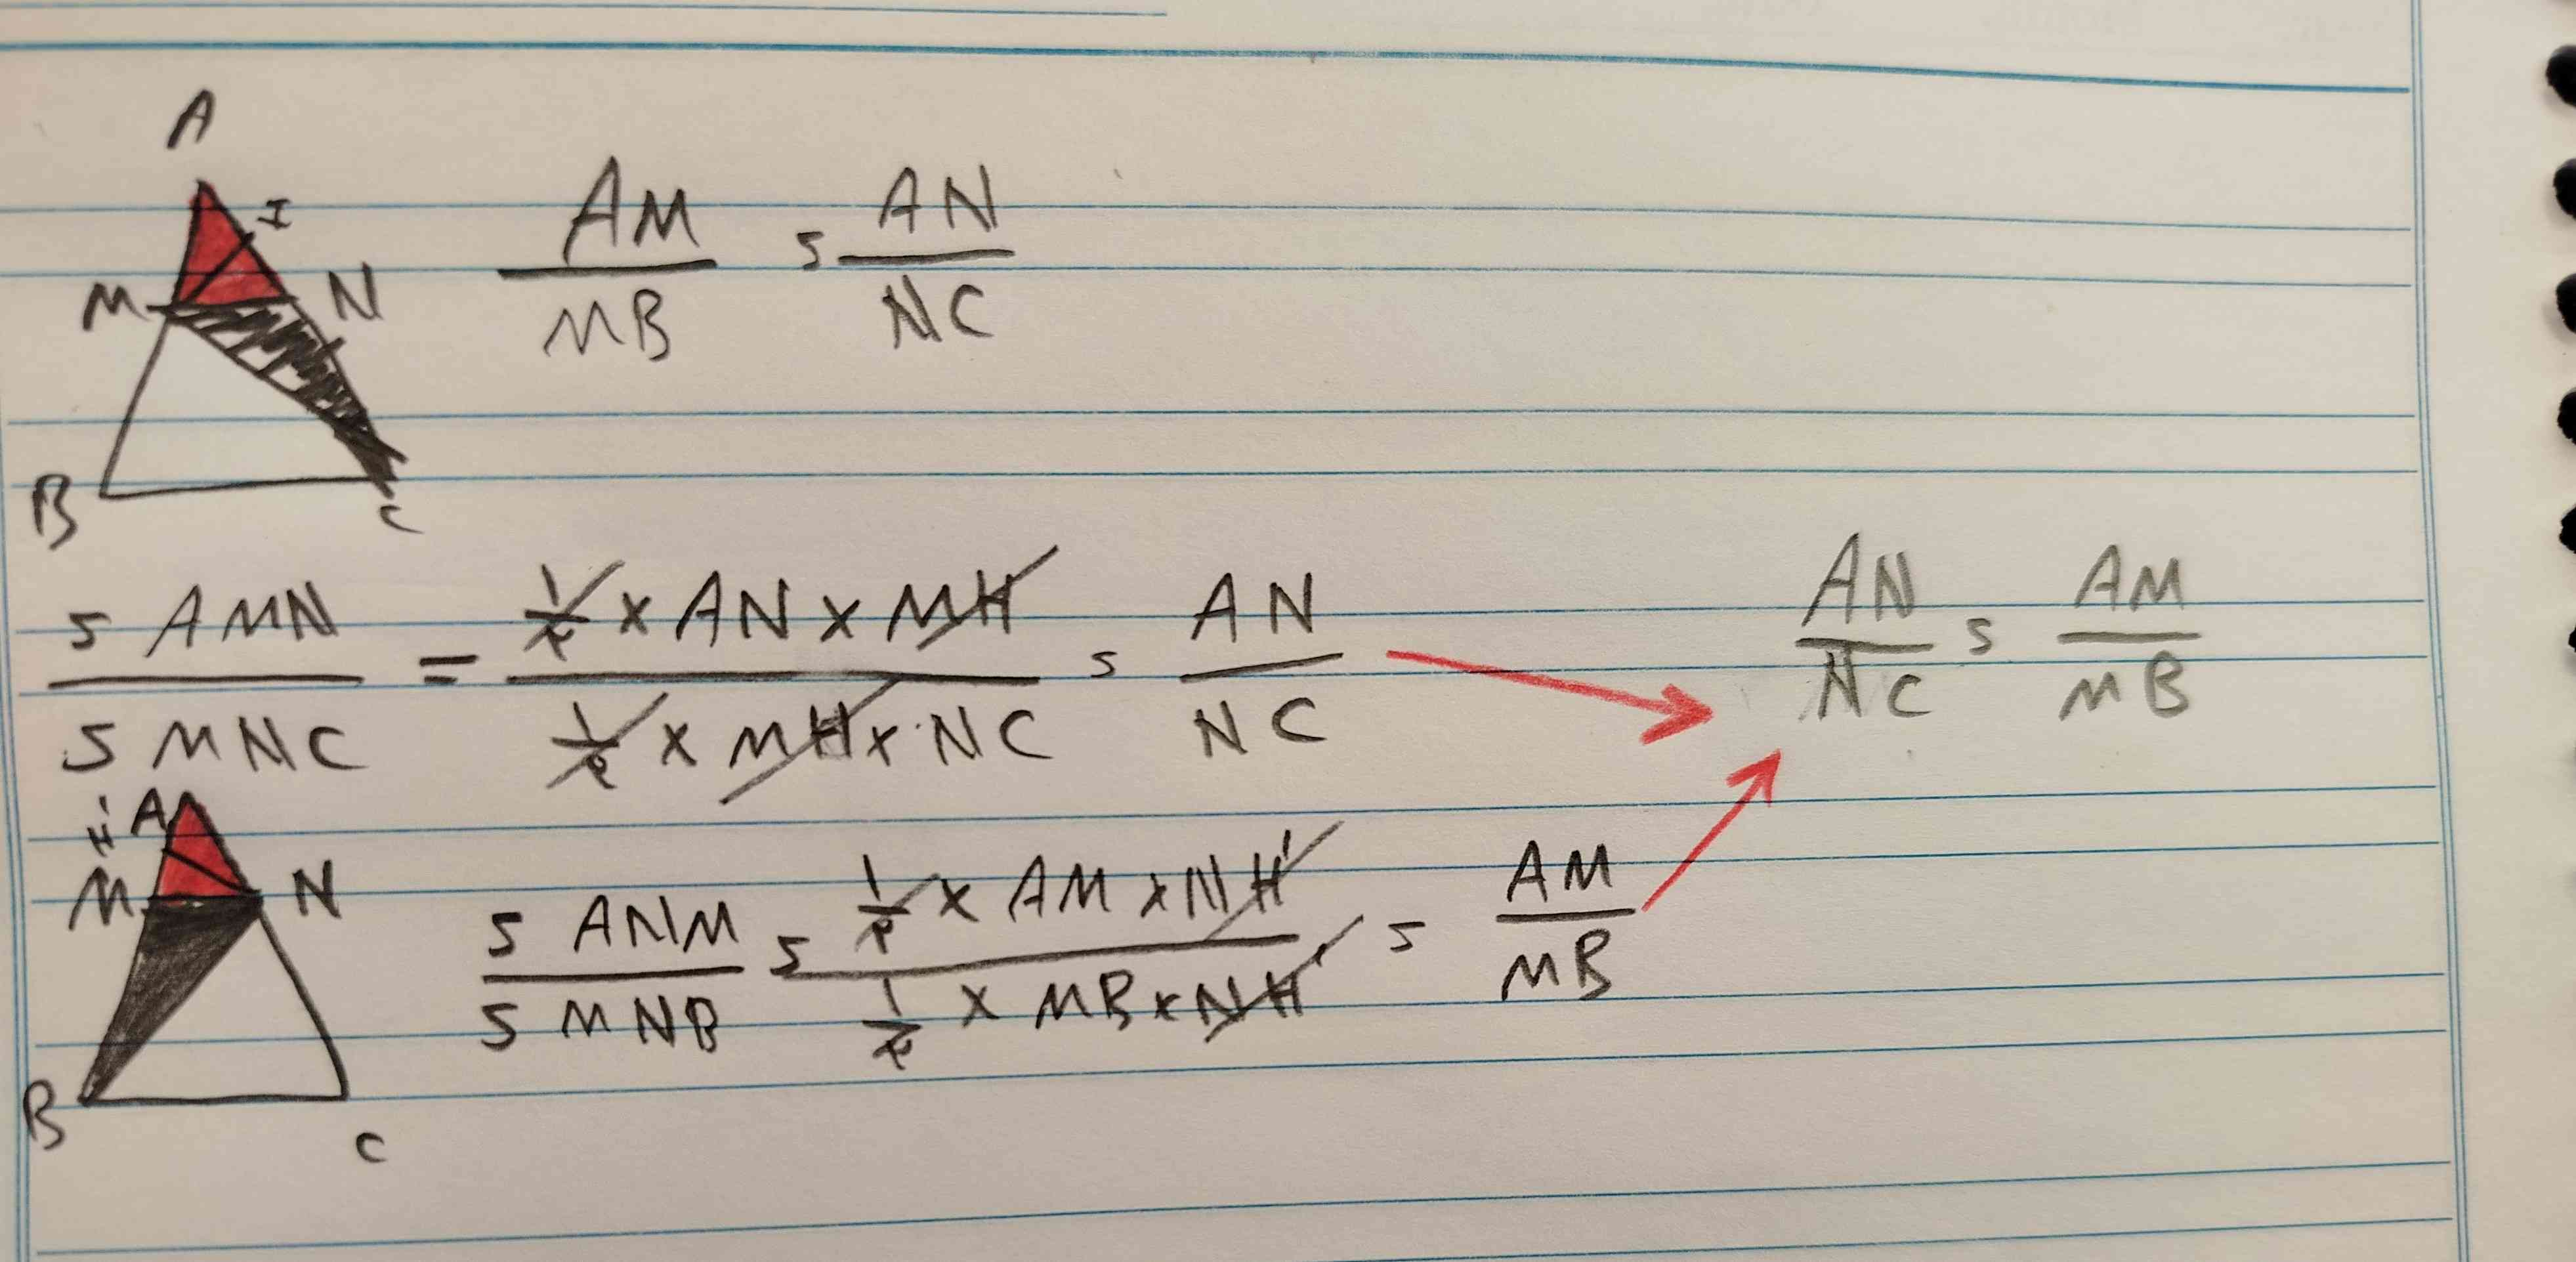 A
I
M N
B C
AM/MB s AN/NC
s AMN/s MNC = 1/2 × AN × MH/1/2 × MH × NC s AN/NC
AN/NC s AM/MB
H' A
M N
B C
s ANM/s MNB s 1/2 × AM × NH'/1/2 × MB × NH' s AM/MB